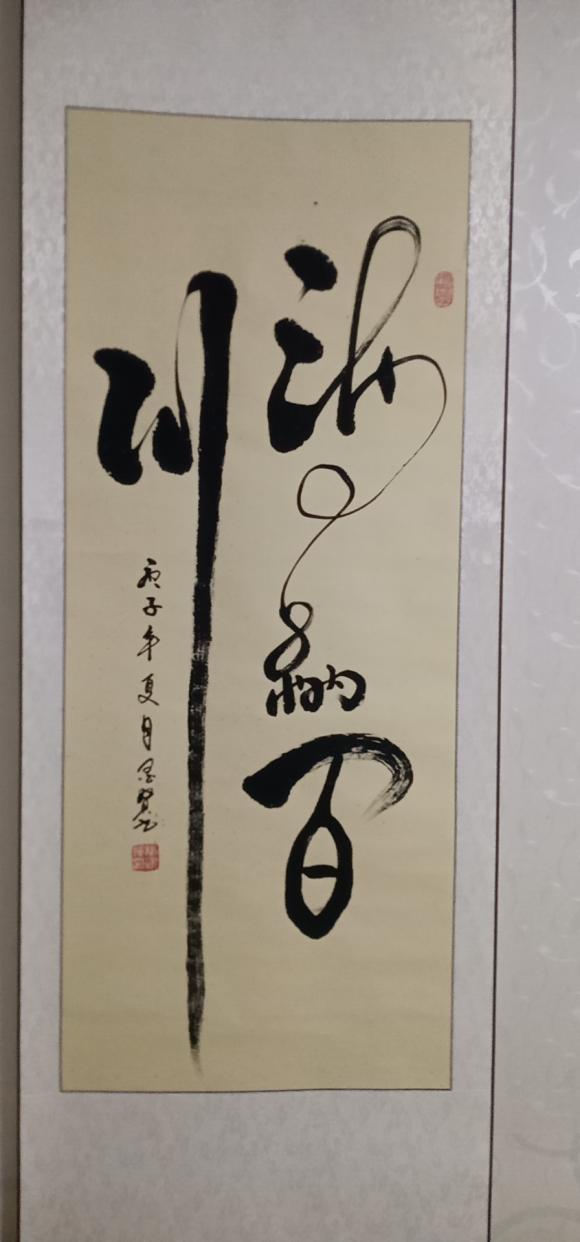 海纳百
川
庚子年夏月